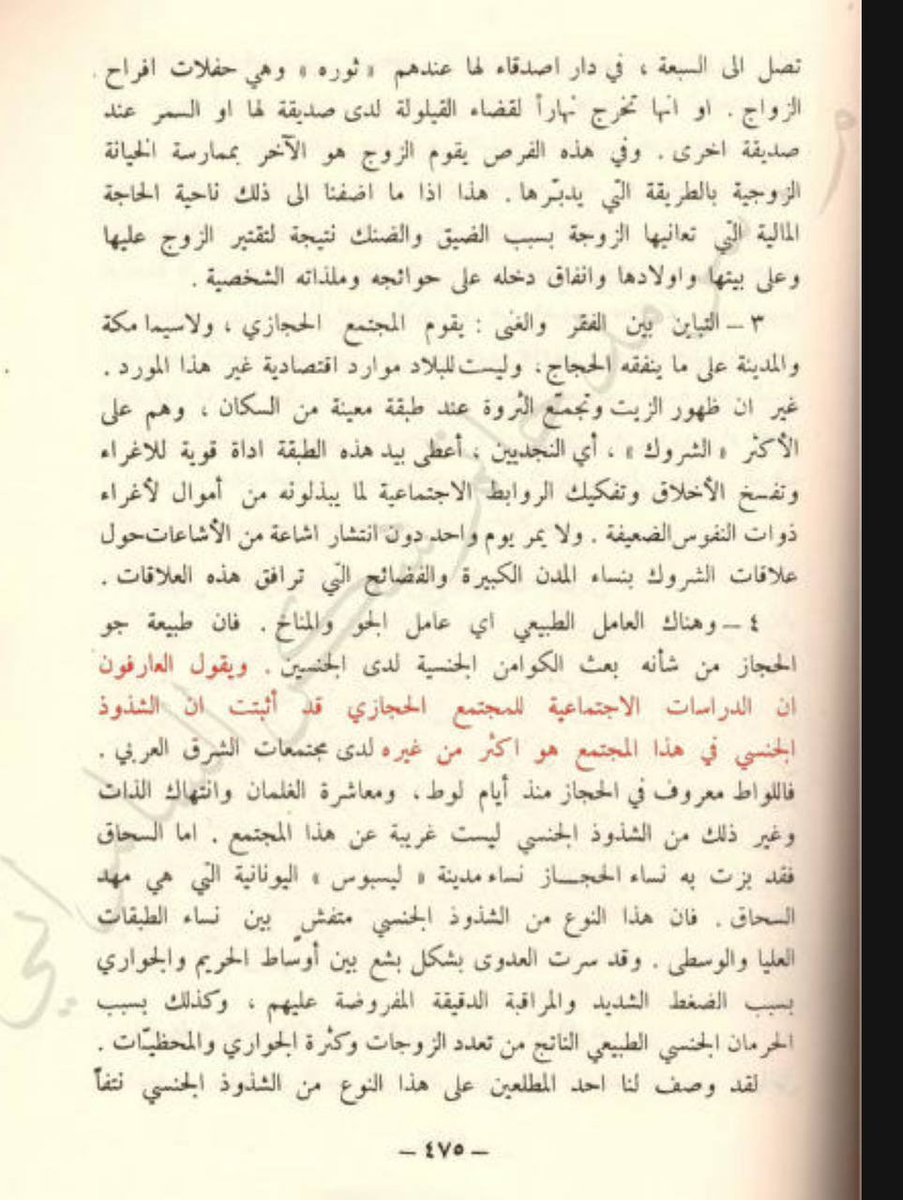 تصل الى السبعة ، في دار اصدقاء لها عندهم « ثوره » وهي حفلات افراح
الزواج . او انها تخرج نهاراً لقضاء القيلولة لدى صديقة لها او السمر عند
صديقة اخرى . وفي هذه الفرص يقوم الزوج هو الآخر بممارسة الخيانة
الزوجية بالطريقة التي يدبّرها . هذا اذا ما اضفنا الى ذلك ناحية الحاجة
المالية التي تعانيها الزوجة بسبب الضيق والضنك نتيجة لتقتير الزوج عليها
وعلى بيتها واولادها وانفاق دخله على حوائجه وملذاته الشخصية .
٣ – التباين بين الفقر والغنى : يقوم المجتمع الحجازي ، ولاسيما مكة
والمدينة على ما ينفقه الحجاج ، وليست للبلاد موارد اقتصادية غير هذا المورد .
غير ان ظهور الزيت وتجمتع الثروة عند طبقة معينة من السكان ، وهم على
الأكثر « الشروك » ، أي النجديين ، أعطى بيد هذه الطبقة اداة قوية للاغراء
وتفسخ الأخلاق وتفكيك الروابط الاجتماعية لما يبذلونه من أموال لأغراء
ذوات النفوس الضعيفة . ولا يمر يوم واحد دون انتشار اشاعة من الأشاعات حول
علاقات الشروك بنساء المدن الكبيرة والفضائح التي ترافق هذه العلاقات .
٤ – وهناك العامل الطبيعي اي عامل الجو والمناخ . فان طبيعة جو
الحجاز من شأنه بعث الكوامن الجنسية لدى الجنسين . ويقول العارفون
ان الدراسات الاجتماعية للمجتمع الحجازي قد أثبتت ان الشذوذ
الجنسي في هذا المجتمع هو اكثر من غيره لدى مجتمعات الشرق العربي .
فاللواط معروف في الحجاز منذ أيام لوط ، ومعاشرة الغلمان وانتهاك الذات
وغير ذلك من الشذوذ الجنسي ليست غريبة عن هذا المجتمع . اما السحاق
فقد بزت به نساء الحجاز نساء مدينة « ليسبوس » اليونانية التي هي مهد
السحاق . فان هذا النوع من الشذوذ الجنسي متفش بين نساء الطبقات
العليا والوسطى . وقد سرت العدوى بشكل بشع بين أوساط الحريم والجواري
بسبب الضغط الشديد والمراقبة الدقيقة المفروضة عليهم ، وكذلك بسبب
الحرمان الجنسي الطبيعي الناتج من تعدد الزوجات وكثرة الجواري والمحظيّات .
لقد وصف لنا احد المطلعين على هذا النوع من الشذوذ الجنسي نتفاً
– ٤٧٥ –